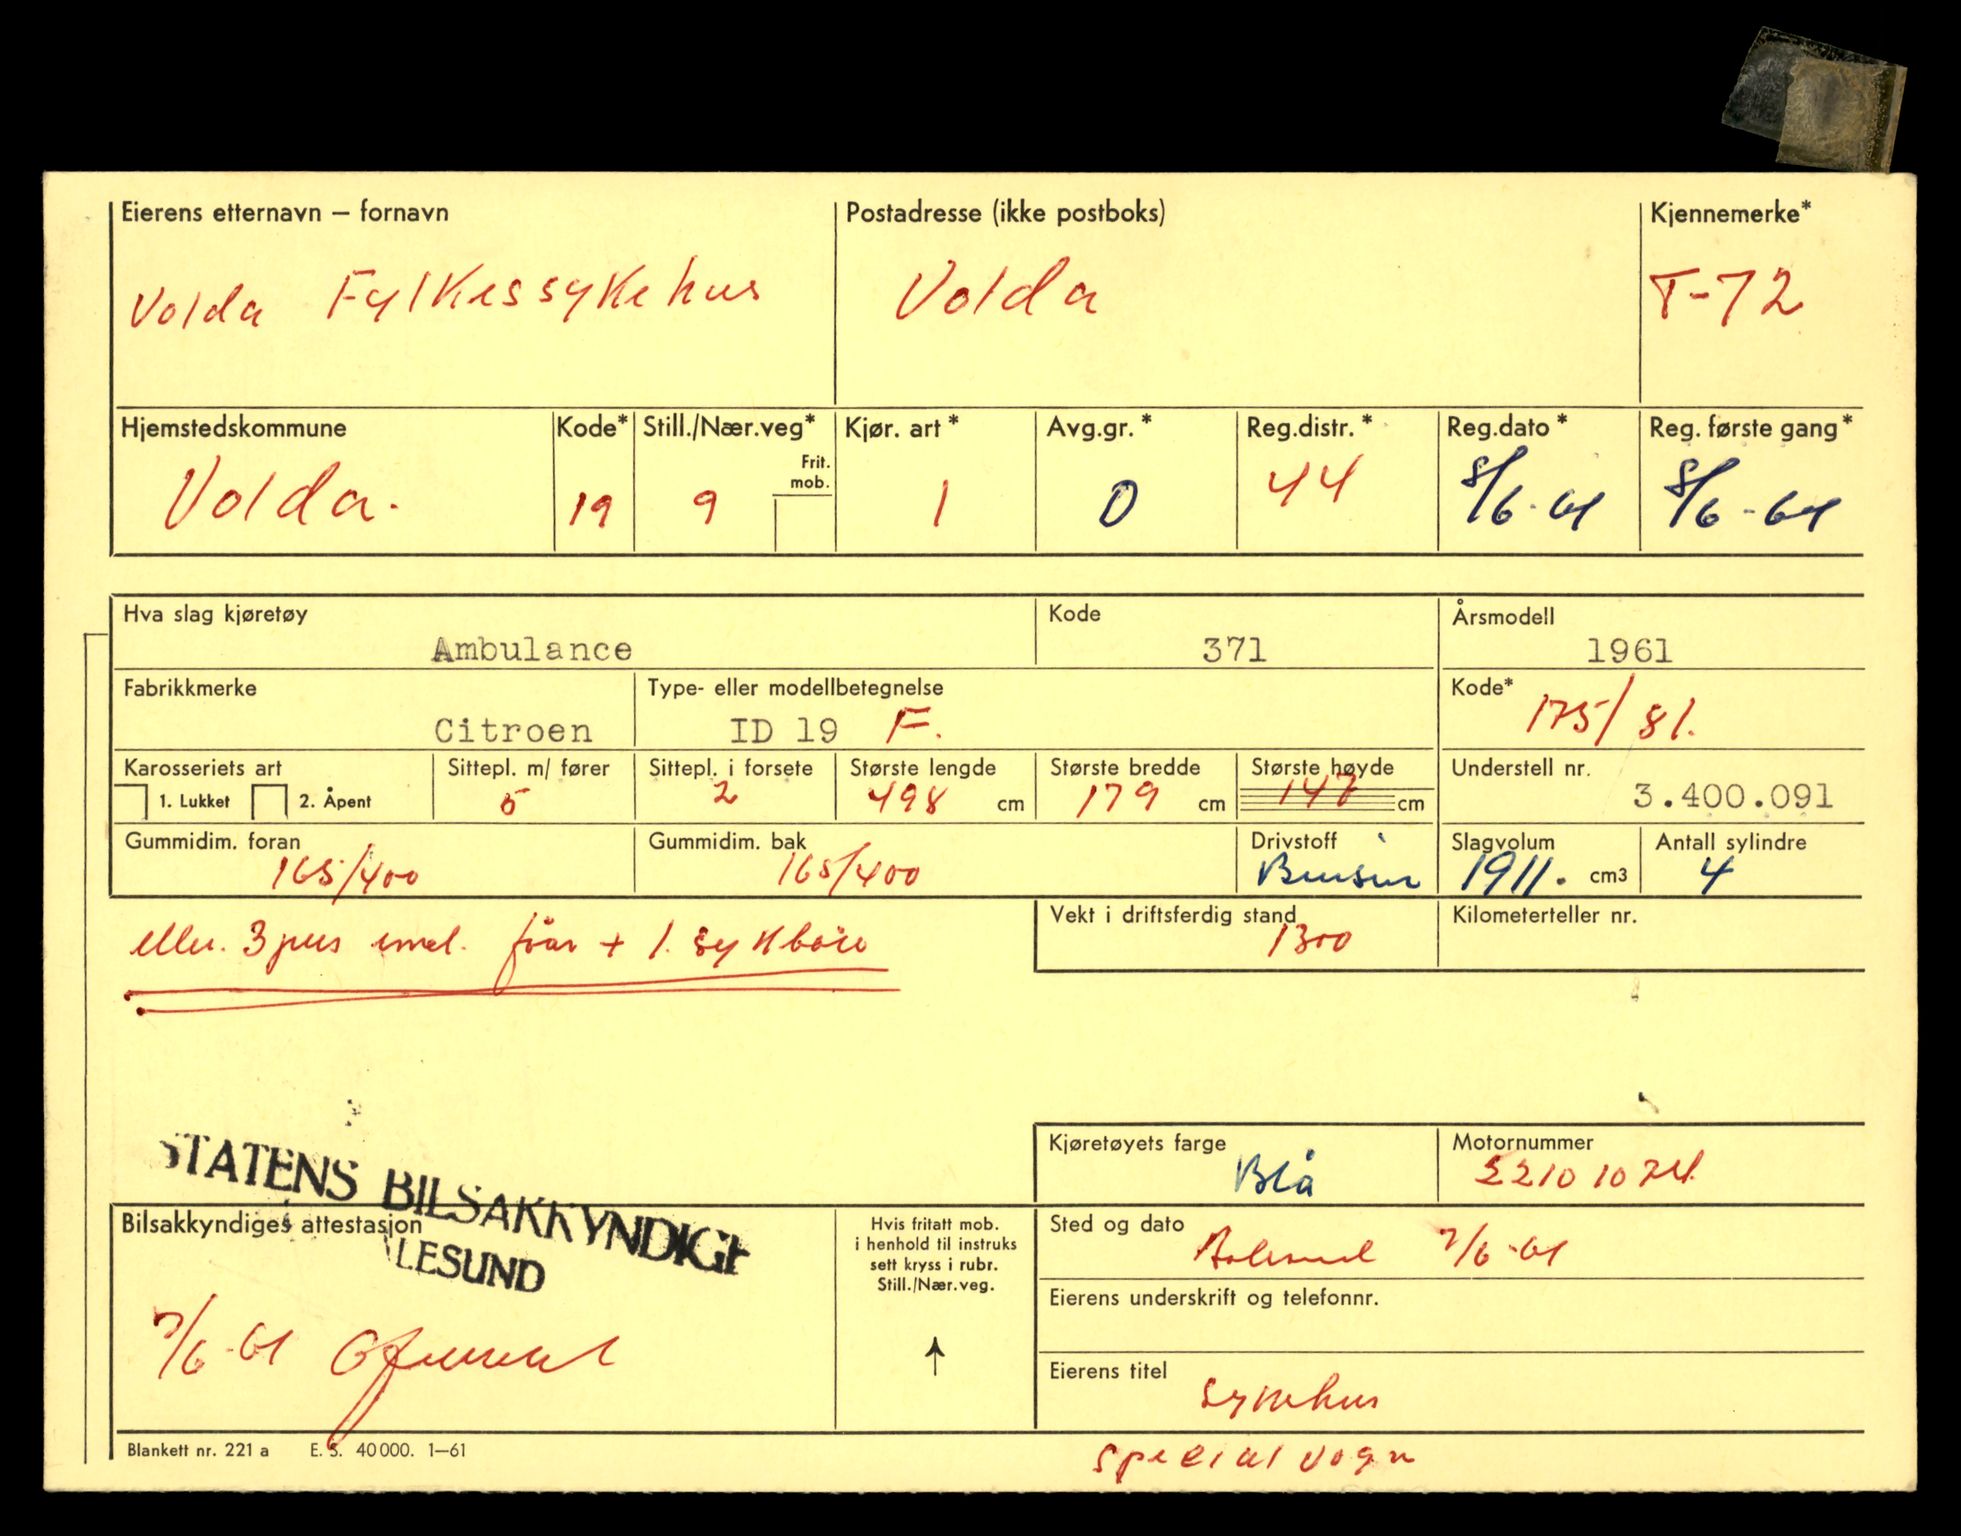 Eierens etternavn – fornavn
Postadresse (ikke postboks)
Kjennemerke*
Volda Fylkessykehus
Volda
T-72
Hjemstedskommune
Kode*
Still./Nær.veg*
Frit. mob.
Kjør. art *
Avg.gr. *
Reg.distr. *
Reg.dato *
Reg. første gang *
Volda.
19
9
1
0
44
8/6-61
8/6-61
Hva slag kjøretøy
Kode
Årsmodell
Ambulance
371
1961
Fabrikkmerke
Type- eller modellbetegnelse
Kode*
Citroen
ID 19 F.
175/81.
Karosseriets art
1. Lukket
2. Åpent
Sittepl. m/ fører
5
Sittepl. i forsete
2
Største lengde
498 cm
Største bredde
179 cm
Største høyde
147 cm
Understell nr.
3.400.091
Gummidim. foran
165/400
Gummidim. bak
165/400
Drivstoff
Bensin
Slagvolum
1911. cm3
Antall sylindre
4
eller. 3 pers incl. + 1. sykbåre
Vekt i driftsferdig stand
1300
Kilometerteller nr.
STATENS BILSAKKYNDIGE
ÅLESUND
Kjøretøyets farge
Blå
Motornummer
Bilsakkyndiges attestasjon
7/6-61
Hvis fritatt mob.
i henhold til instruks
sett kryss i rubr.
Still./Nær.veg.
Sted og dato
Aalesund 7/6-61
Eierens underskrift og telefonnr.
Eierens titel
Sykehus
Blankett nr. 221 a E. S. 40 000. 1–61
Specialvogn